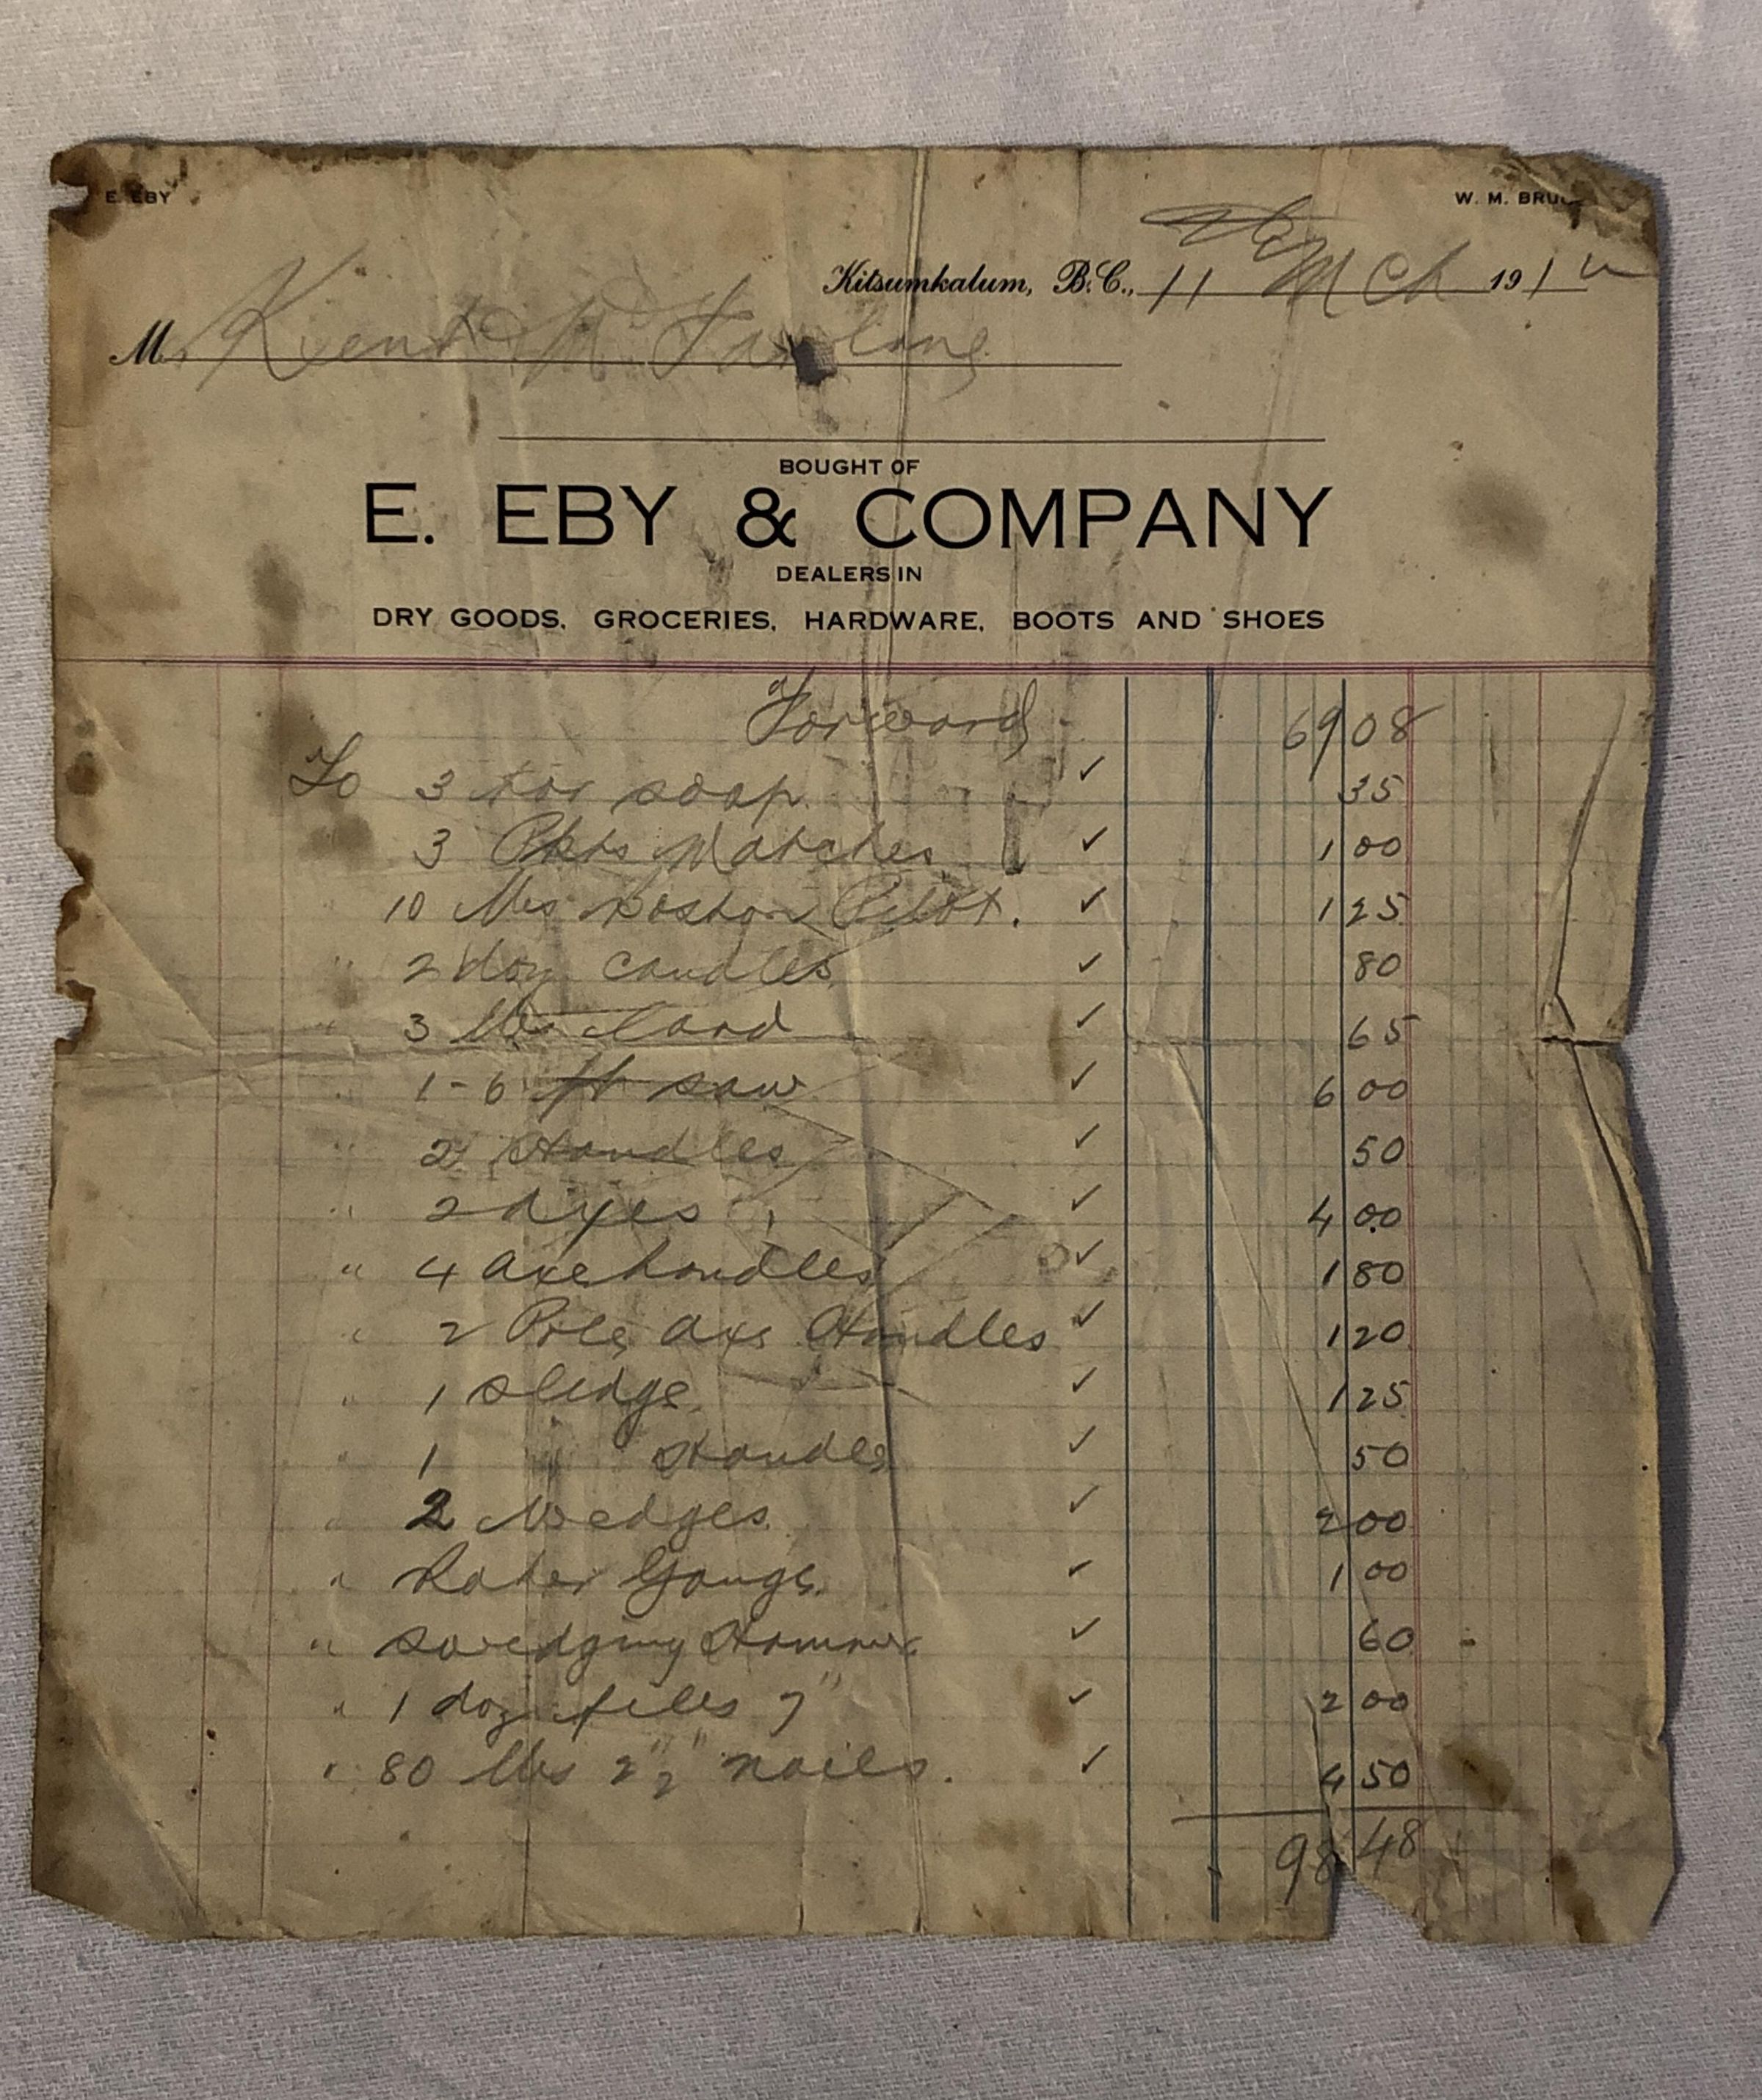 E. EBY
W. M. BRU
Kitsumkalum, B.C., 11 Mch 191
M Kient & Mc Farlane
BOUGHT OF
E. EBY & COMPANY
DEALERS IN
DRY GOODS, GROCERIES, HARDWARE, BOOTS AND SHOES
Forward 69 08
To 3 soap ✓ 35
3 Pkts Matches ✓ 1 00
10 lbs Boston Pilot. ✓ 1 25
" 2 doz candles ✓ 80
" 3 lbs Lard ✓ 65
" 1 - 6 ft saw ✓ 6 00
" 2 Handles ✓ 50
" 2 Axes ✓ 4 00
" 4 axe handles ✓ 1 80
" 2 Pole axe Handles ✓ 1 20
" 1 sledge ✓ 1 25
" 1 " Handle ✓ 50
" 2 Wedges ✓ 2 00
" Raker Gauge ✓ 1 00
" swedging Hammer ✓ 60
" 1 doz files 7" ✓ 2 00
" 80 lbs 2 1/2" nails. ✓ 4 50
98 48